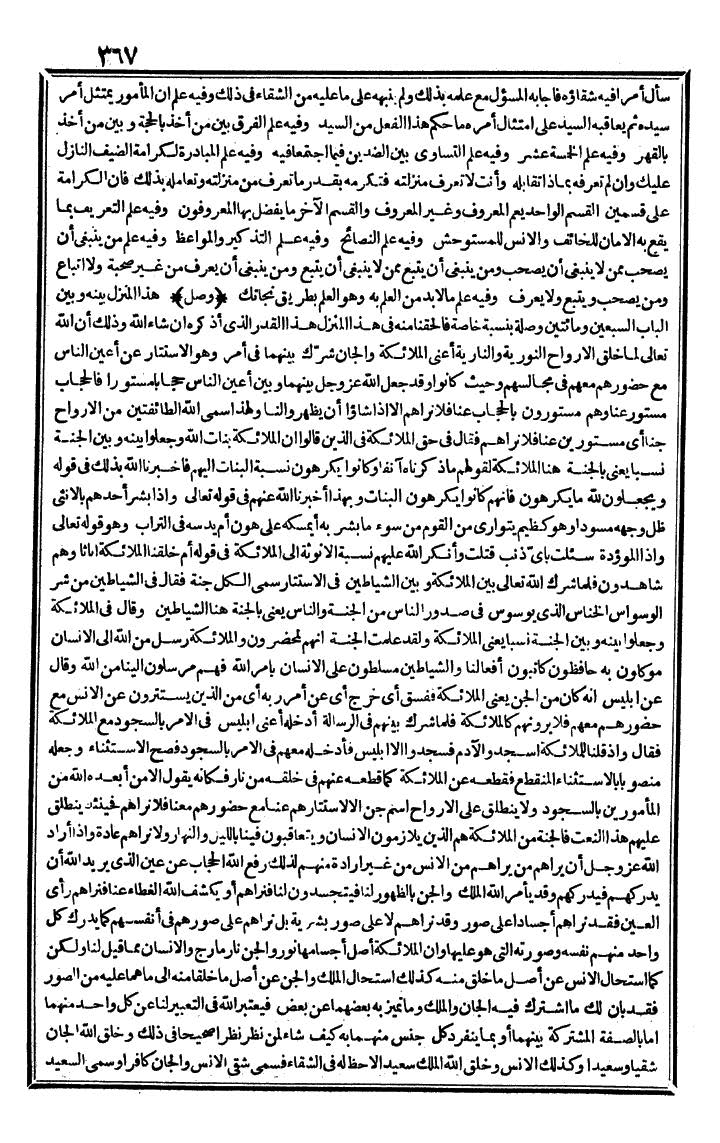 ٣٦٧
سأل أمرا فيه شقاؤه فاجابه المسؤل مع علمه بذلك ولم ينبهه على ما عليه من الشقاء فى ذلك وفيه علم ان المأمور يمتثل أمر
سيده ثم يعاقبه السيد على امتثال أمره ما حكم هذا الفعل من السيد وفيه علم الفرق بين من أخذ بالحجة وبين من أخذ
بالقهر وفيه علم الخمسة عشر وفيه علم التساوى بين الضدين فيما اجتمعا فيه وفيه علم المبادرة لكرامة الضيف النازل
عليك وان لم تعرفه بماذا تقابله وأنت لا تعرف منزلته فتكرمه بقدر ما تعرف من منزلته وتعامله بذلك فان الكرامة
على قسمين القسم الواحد يعم المعروف وغير المعروف والقسم الآخر ما يفضل بها المعروفون وفيه علم التعريف بما
يقع به الامان للخائف والانس للمستوحش وفيه علم النصائح وفيه علم التذكير والمواعظ وفيه علم من ينبغى أن
يصحب ممن لا ينبغى أن يصحب ومن ينبغى أن يتبع ممن لا ينبغى أن يتبع ومن ينبغى أن يعرف من غير صحبة ولا اتباع
ومن يصحب ويتبع ولا يعرف وفيه علم ما لا بد من العلم به وهو العلم بطريق نجاتك ﴿وصل﴾ هذا المنزل بينه وبين
الباب السبعين ومائتين وصلة بنسبة خاصة فالحقنا منه فى هذا المنزل هذا القدر الذى أذكره ان شاء الله وذلك أن الله
تعالى لما خلق الارواح النورية والنارية أعنى الملائكة والجان شرّك بينهما فى أمر وهو الاستتار عن أعين الناس
مع حضورهم معهم فى مجالسهم وحيث كانوا وقد جعل الله عز وجل بينهما وبين أعين الناس حجابا مستورا فالحجاب
مستور عنا وهم مستورون بالحجاب عنا فلا نراهم الا اذا شاؤا أن يظهروا لنا ولهذا سمى الله الطائفتين من الارواح
جنا أى مستورين عنا فلا نراهم فقال فى حق الملائكة فى الذين قالوا ان الملائكة بنات الله وجعلوا بينه وبين الجنة
نسبا يعنى بالجنة هنا الملائكة لقولهم ما ذكرناه آنفا وكانوا يكرهون نسبة البنات اليهم فاخبرنا الله بذلك فى قوله
ويجعلون لله ما يكرهون فانهم كانوا يكرهون البنات وبهذا أخبرنا الله عنهم فى قوله تعالى واذا بشر أحدهم بالانثى
ظل وجهه مسودا وهو كظيم يتوارى من القوم من سوء ما بشر به أيمسكه على هون أم يدسه فى التراب وهو قوله تعالى
واذا الموؤدة سئلت بأىّ ذنب قتلت وأنكر الله عليهم نسبة الانوثة الى الملائكة فى قوله أم خلقنا الملائكة اناثا وهم
شاهدون فلما شرك الله تعالى بين الملائكة وبين الشياطين فى الاستتار سمى الكل جنة فقال فى الشياطين من شر
الوسواس الخناس الذى يوسوس فى صدور الناس من الجنة والناس يعنى بالجنة هنا الشياطين وقال فى الملائكة
وجعلوا بينه وبين الجنة نسبا يعنى الملائكة ولقد علمت الجنة انهم لمحضرون والملائكة رسل من الله الى الانسان
موكلون به حافظون كاتبون أفعالنا والشياطين مسلطون على الانسان بامر الله فهم مرسلون الينا من الله وقال
عن ابليس انه كان من الجن يعنى الملائكة ففسق أى خرج أى عن أمر ربه أى من الذين يستترون عن الانس مع
حضورهم معهم فلا يرونهم كالملائكة فلما شرك بينهم فى الرسالة أدخله أعنى ابليس فى الامر بالسجود مع الملائكة
فقال واذ قلنا للملائكة اسجدوا لآدم فسجدوا الا ابليس فأدخله معهم فى الامر بالسجود فصح الاستثناء وجعله
منصوبا بالاستثناء المنقطع فقطعه عن الملائكة كما قطعه عنهم فى خلقه من نار فكانه يقول الا من أبعده الله من
المأمورين بالسجود ولا ينطلق على الارواح اسم جن الا لاستتارهم عنا مع حضورهم معنا فلا نراهم فحينئذ ينطلق
عليهم هذا النعت فالجنة من الملائكة هم الذين يلازمون الانسان ويتعاقبون فينا بالليل والنهار ولا نراهم عادة واذا أراد
الله عز وجل أن يراهم من يراهم من الانس من غير ارادة منهم لذلك رفع الله الحجاب عن عين الذى يريد الله أن
يدركهم فيدركهم وقد يأمر الله الملك والجن بالظهور لنا فيتجسدون لنا فنراهم أو يكشف الله الغطاء عنا فنراهم رأى
العين فقد نراهم أجسادا على صور وقد نراهم لا على صور بشرية بل نراهم على صورهم فى أنفسهم كما يدرك كل
واحد منهم نفسه وصورته التى هو عليها وان الملائكة أصل أجسامها نور والجن نار مارج والانسان مما قيل لنا ولكن
كما استحال الانس عن أصل ما خلق منه كذلك استحال الملك والجن عن أصل ما خلقا منه الى ما هما عليه من الصور
فقد بان لك ما اشترك فيه الجان والملك وما تميز به بعضهما عن بعض فيعتبر الله فى التعبير لنا عن كل واحد منهما
اما بالصفة المشتركة بينهما أو بما ينفرد كل جنس منهما به كيف شاء لمن نظر نظرا صحيحا فى ذلك وخلق الله الجان
شقيا وسعيدا وكذلك الانس وخلق الله الملك سعيدا لا حظ له فى الشقاء فسمى شقى الانس والجان كافرا وسمى السعيد